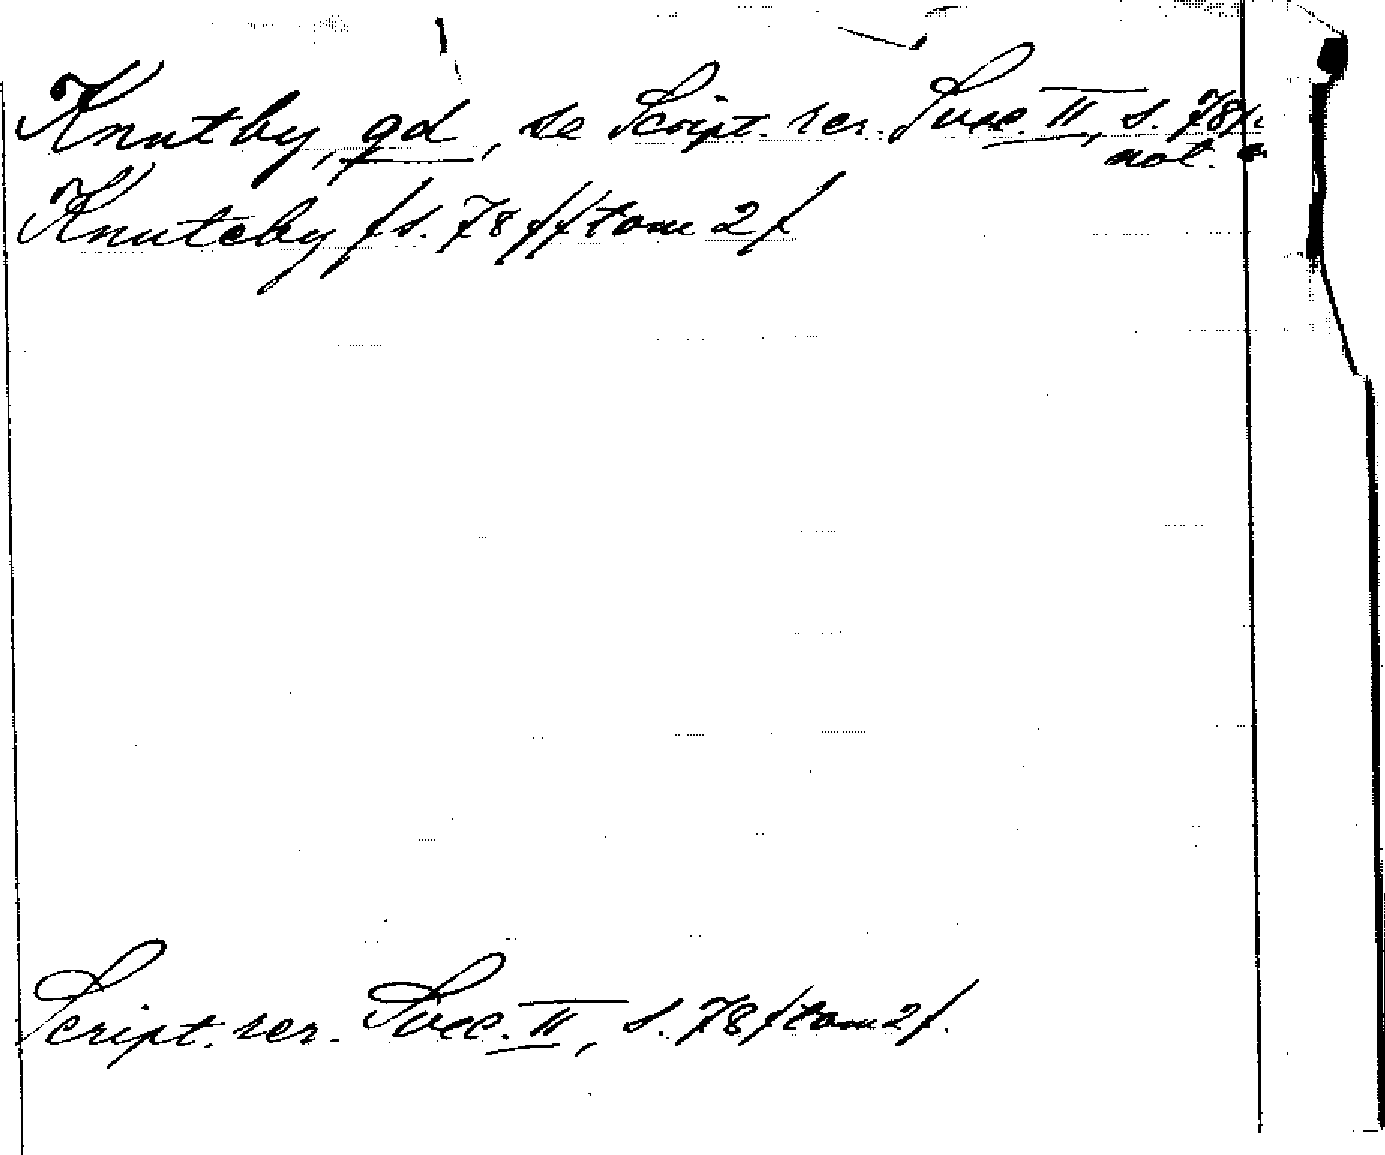 Knutby, gd, se Script. rer. Svec. II, s. 78/.
not.
Knuteby /s. 78/ /tom 2/
Script. rer. Svec. II, s. 78 /tom 2/.